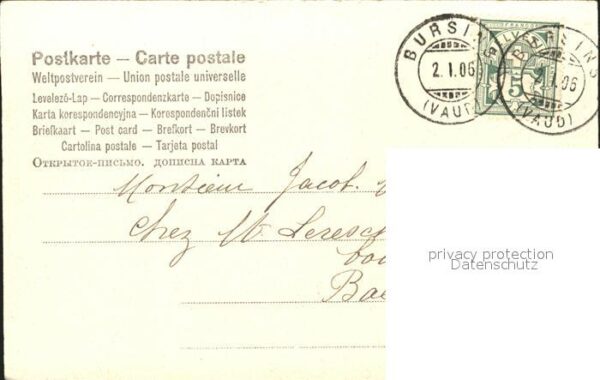 Postkarte — Carte postale
Weltpostverein — Union postale universelle
Levelező-Lap — Correspondenzkarte — Dopisnice
Karta korespondencyjna — Korespondenční listek
Briefkaart — Post card — Brefkort — Brevkort
Cartolina postale — Tarjeta postal
Открытое-письмо. дописна карта
BURSINS
2.I.06
(VAUD)
FRANCO
5
BURSINS
2.I.06
(VAUD)
Monsieur Jacot.
Chez Mr
privacy protection
Datenschutz